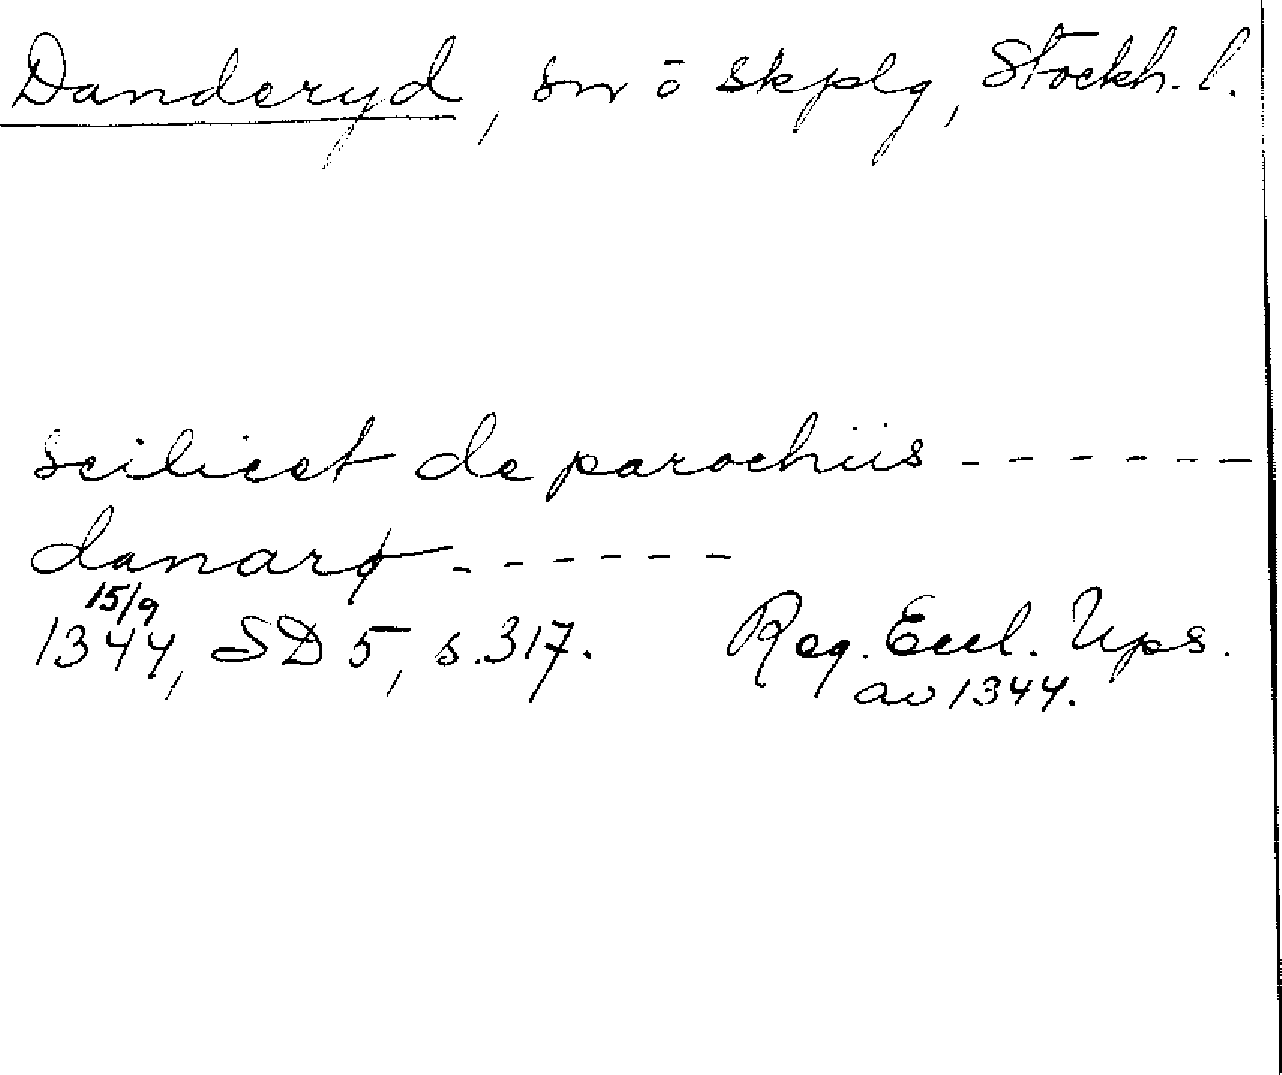 Danderyd, sn o skplg, Stockh. l.
scilicet de parochiis - - - - - -
danarꝩ - - - - - -
15/9
1344, SD 5, s. 317. Reg. Eccl. Ups.
av 1344.